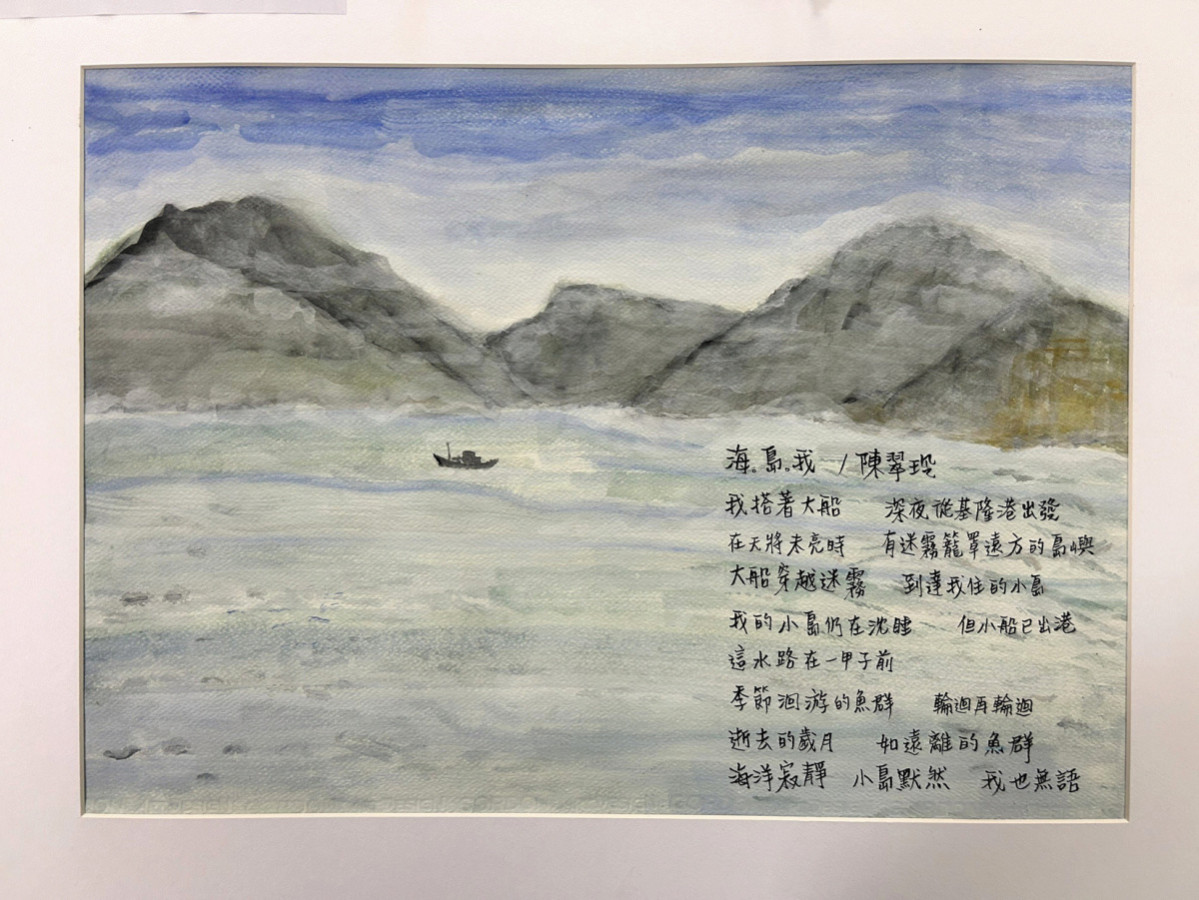 海.島.我 /陳翠玲
我搭著大船 深夜從基隆港出發
在天將未亮時 有迷霧籠罩遠方的島嶼
大船穿越迷霧 到達我住的小島
我的小島仍在沈睡 但小船已出港
這水路在一甲子前
季節洄游的魚群 輪迴再輪迴
逝去的歲月 如遠離的魚群
海洋寂靜 小島默然 我也無語